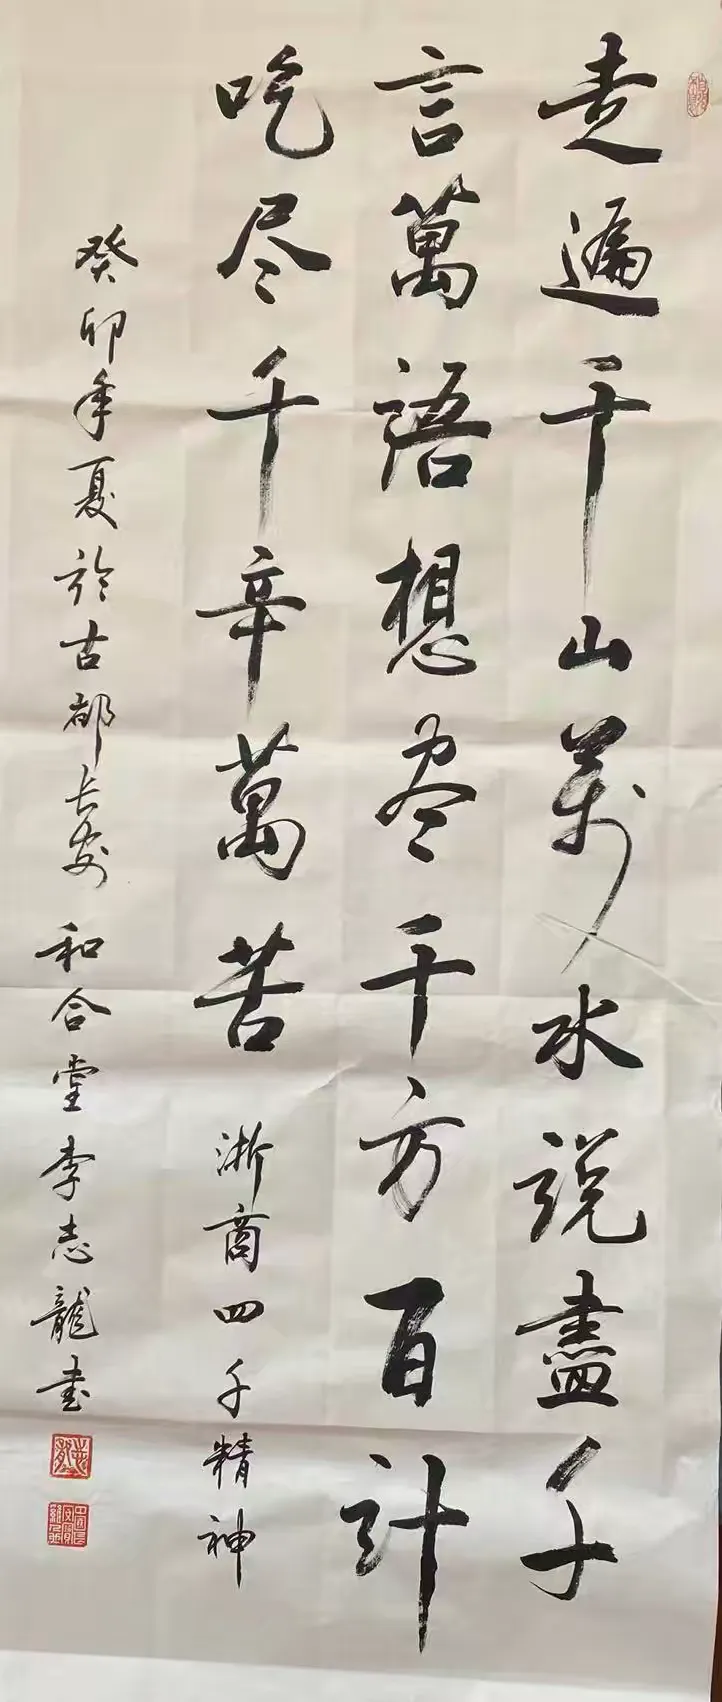 走遍千山萬水説盡千
言萬語想尽千方百計
吃尽千辛萬苦
浙商四千精神
癸卯年夏於古都长安 和合堂李志龍书